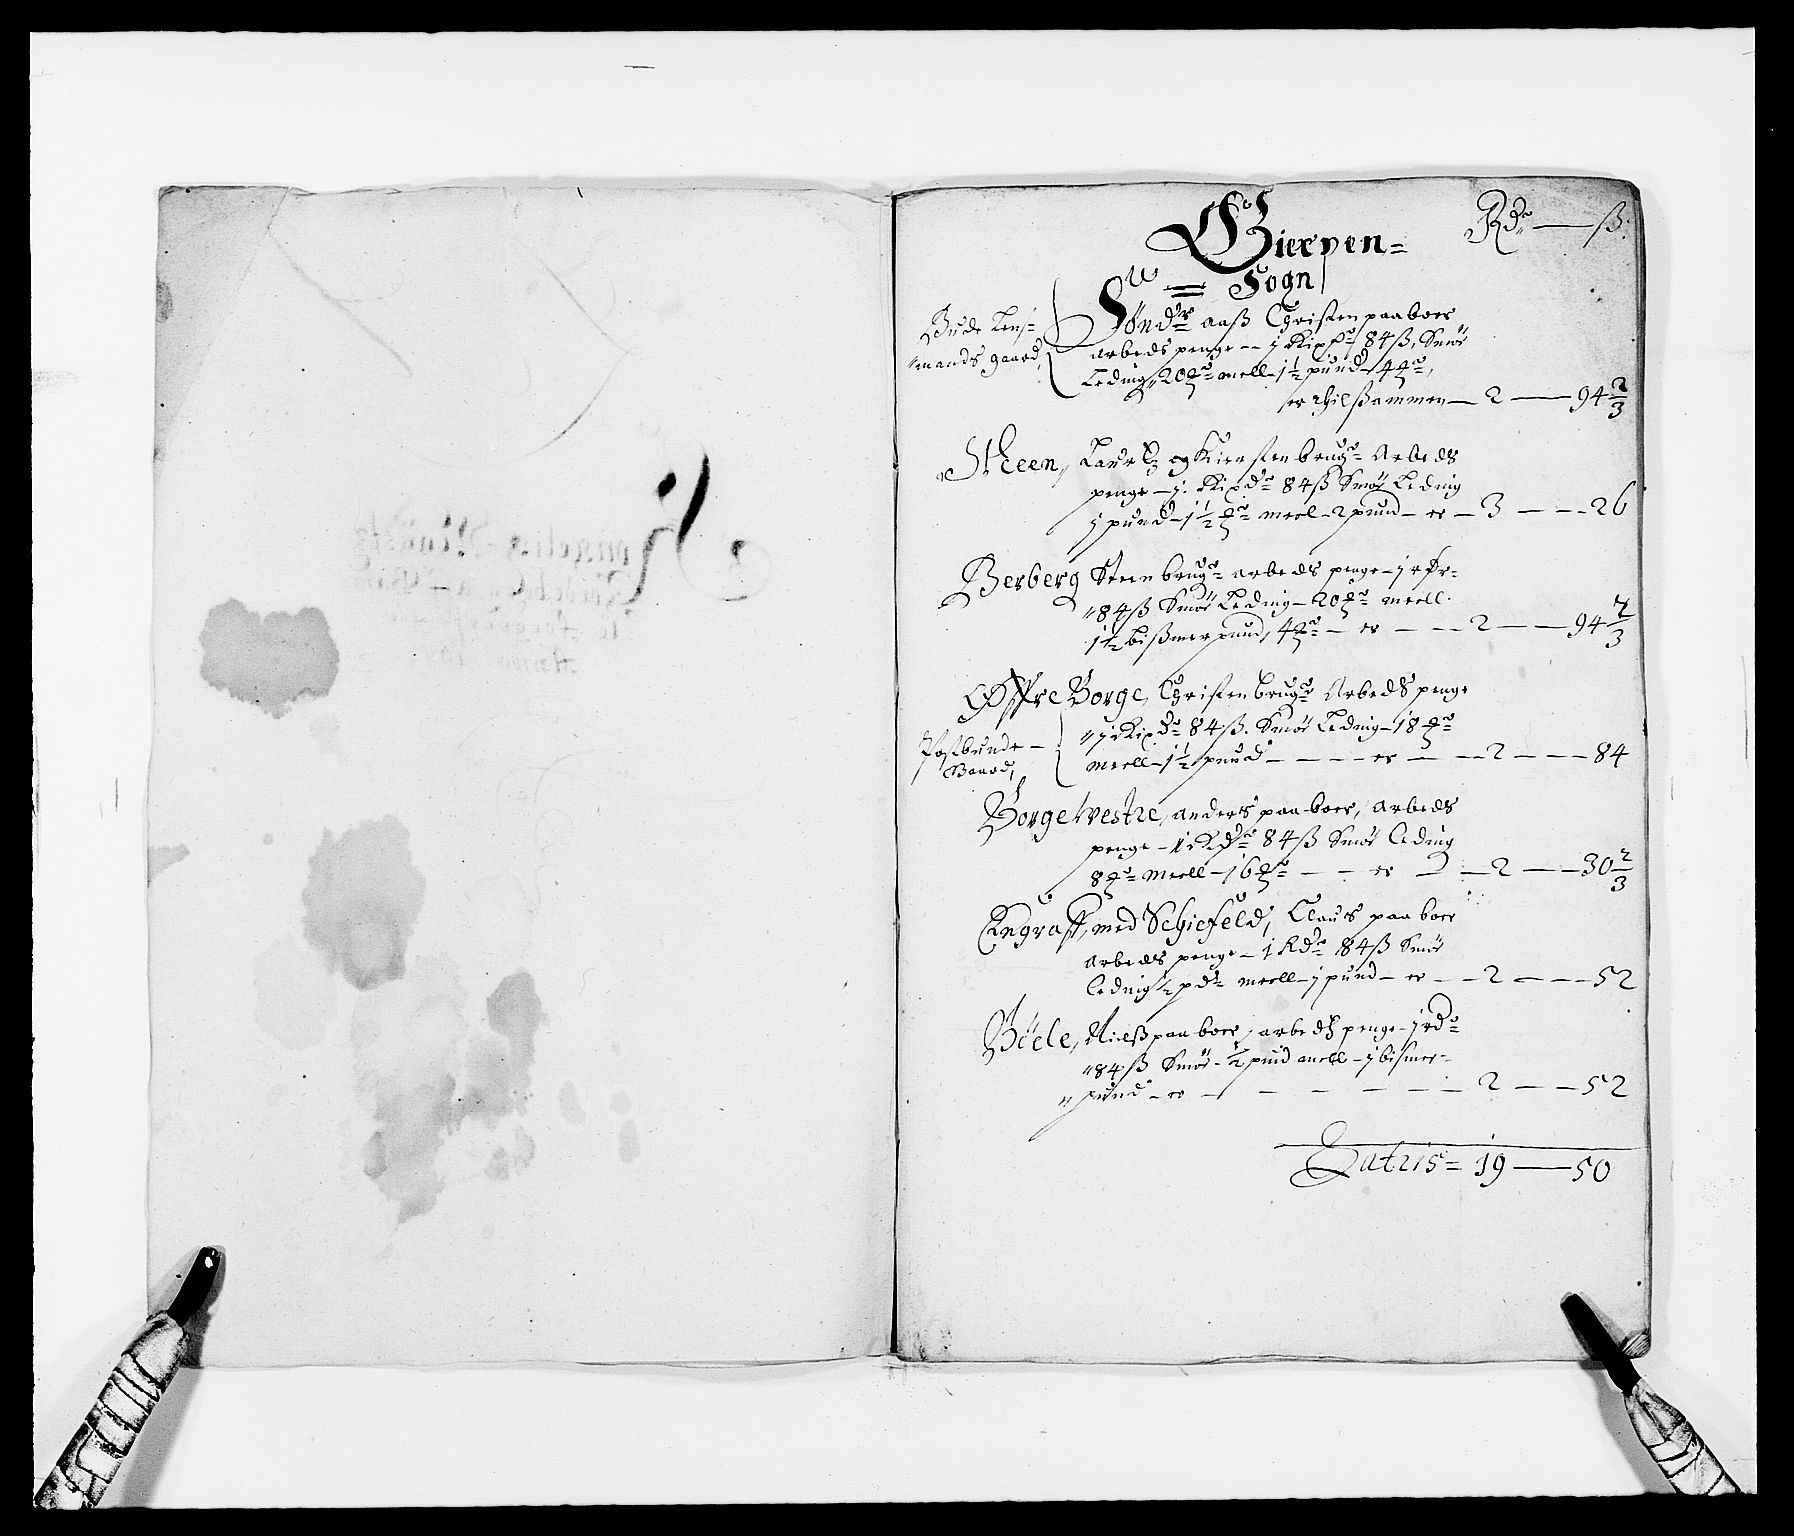 Gierpen=
Sogn
Rdr — ß:
Bude Lens=
mands gaard,
Søndr aaß Christen paaboer
arbeds penge -- j Rixdr 84 ß, Smør
Leding, 20 mrk meell - 1½ pund - 4 mrk,
er thilsammen — 2 — 94 2/3
Meen, Laurtz og Kiersten brugr Arbeds
penge - j. Rixdr 84 ß Smør Leding
j pund - 1½ mrk meel - 2 pund - er - 3 - - - 26
Berberg Steen brugr arbeds penge - j rdr=
84 ß Smør Leding - 20 mrk meell.
1½ bißmerpund, 4 mrk - er - - - 2 - - 94 2/3
Øffre Borge, Christen brugr Arbeds penge
j Rixdr 84 ß. Smør Leding - 18 mrk
Postbunde -
Gaard,
meell - 1½ pund - - - - er - - - 2 - - - 84
Borge Vestre, anders paaboer, arbeds
penge - 1 Rdr 84 ß Smør leding
8 mrk meell - 16 mrk - - - er - - 2 - - 30 2/3
med Schiefeld, Claus paaboer
arbeds penge - 1 Rdr 84 ß Smør
leding ½ pdr meell - j pund - er - - 2 - - - 52
Böele, Nielß paaboer, arbeds penge - j rdr
84 ß Smør - ½ pund meell - j bismer=
pund - er - - - - - - 2 - - - 52
Latris= 19 — 50